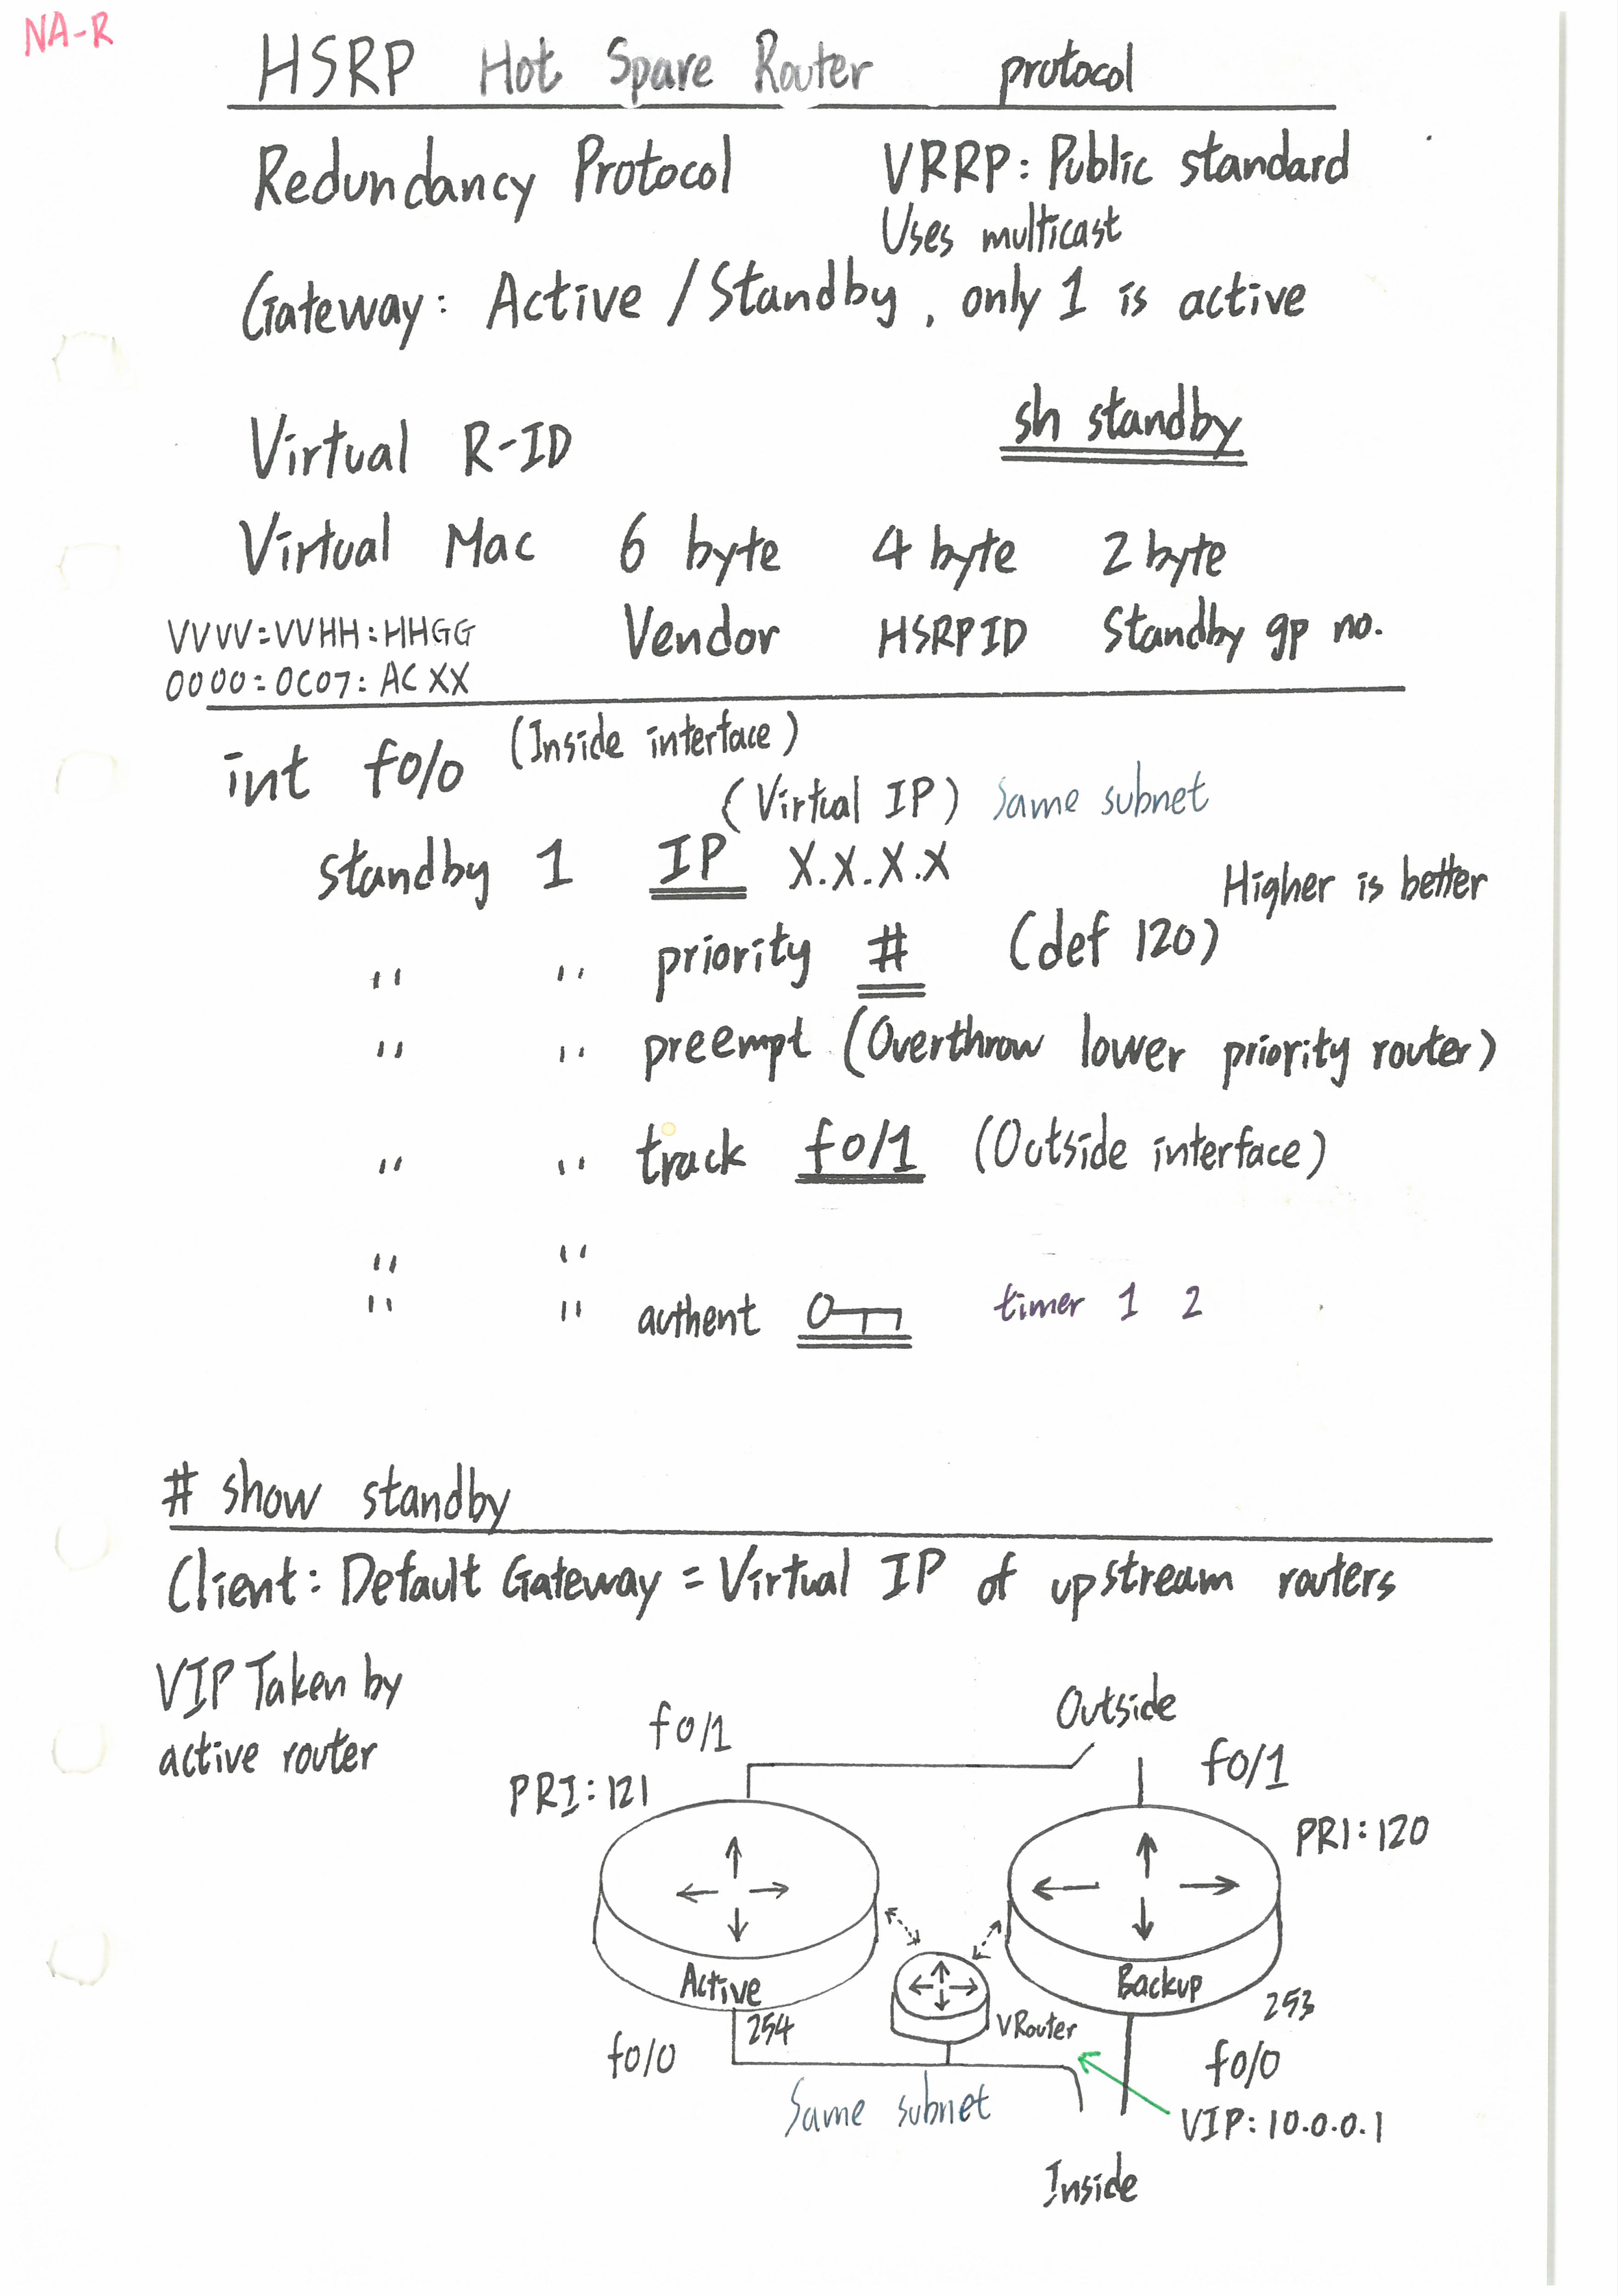 NA-R
HSRP Hot Spare Router protocol
Redundancy Protocol VRRP: Public standard
Uses multicast
Gateway: Active / Standby, only 1 is active
sh standby
Virtual R-ID
Virtual Mac 6 byte 4 byte 2 byte
VVVV:VVHH:HHGG Vendor HSRPID Standby gp no.
0000:0C07:ACXX
int f0/0 (Inside interface)
(Virtual IP) Same subnet
standby 1 IP X.X.X.X
Higher is better
" " priority # (def 120)
" " preempt (Overthrow lower priority router)
" " track f0/1 (Outside interface)
" "
" " authent timer 1 2
# show standby
Client: Default Gateway = Virtual IP of upstream routers
VIP Taken by
active router
f0/1
Outside
f0/1
PRI:121
PRI:120
Active
Backup
254
VRouter
253
f0/0
f0/0
Same subnet
VIP:10.0.0.1
Inside